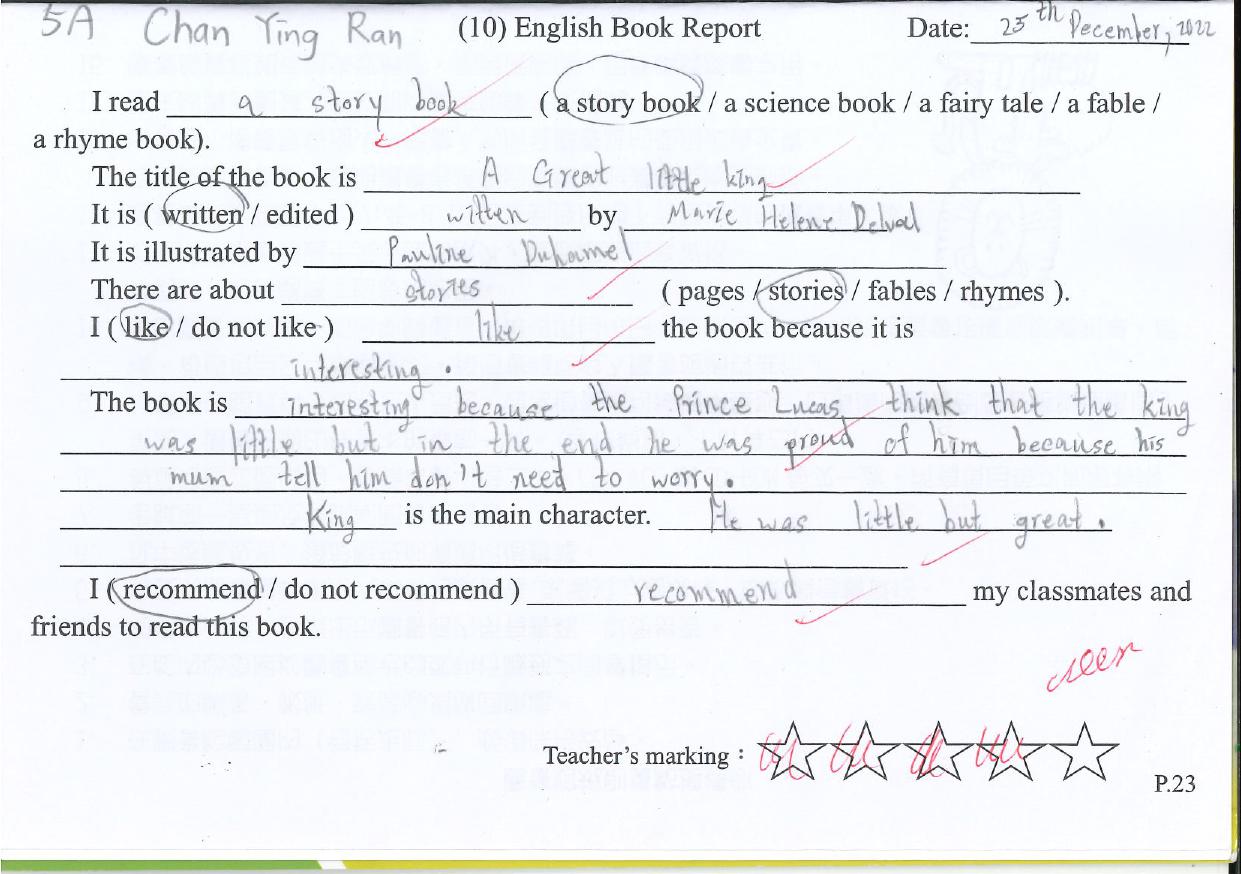 5A Chan Ying Ran (10) English Book Report Date: 25th December, 2022
I read a story book ( a story book / a science book / a fairy tale / a fable /
a rhyme book).
The title of the book is A Great little king
It is ( written / edited ) witten by Marie Helene Delval
It is illustrated by Pauline Duhamel
There are about stories ( pages / stories / fables / rhymes ).
I ( like / do not like ) like the book because it is
interesting.
The book is interesting because the Prince Lucas think that the king
was little but in the end he was proud of him because his
mum tell him don't need to worry.
King is the main character. He was little but great.
I ( recommend / do not recommend ) recommend my classmates and
friends to read this book.
seen
Teacher's marking :
P.23